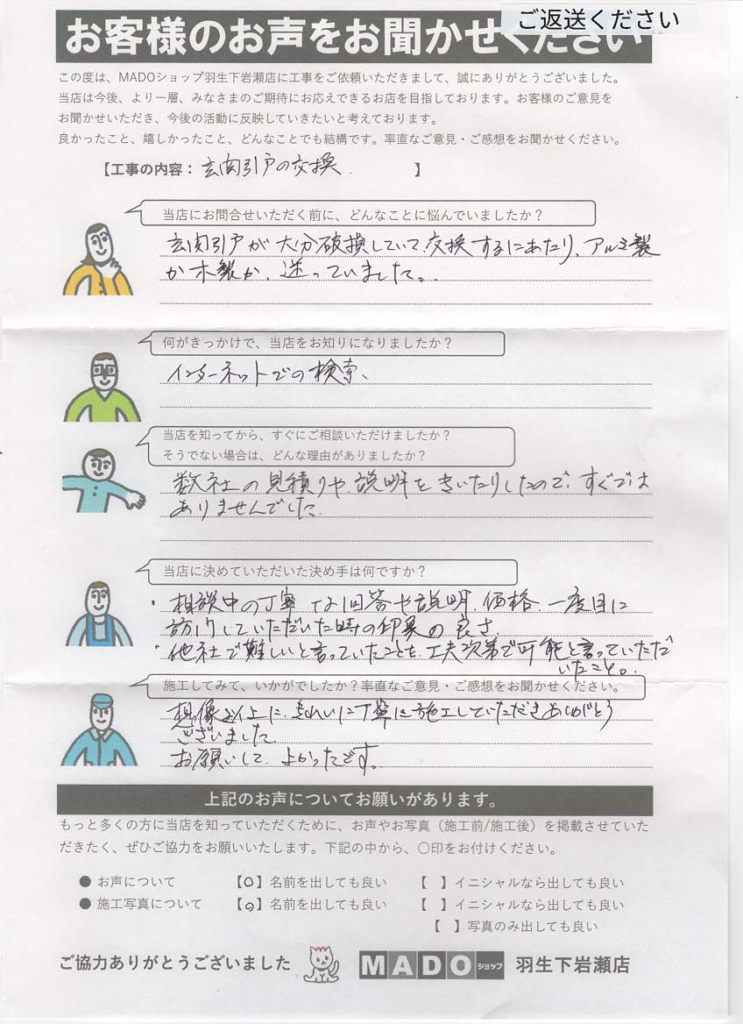 ご返送ください
お客様のお声をお聞かせください
この度は、MADOショップ羽生下岩瀬店に工事をご依頼いただきまして、誠にありがとうございました。
当店は今後、より一層、みなさまのご期待にお応えできるお店を目指しております。お客様のご意見を
お聞かせいただき、今後の活動に反映していきたいと考えております。
良かったこと、嬉しかったこと、どんなことでも結構です。率直なご意見・ご感想をお聞かせください。
【工事の内容：玄関引戸の交換. 】
当店にお問合せいただく前に、どんなことに悩んでいましたか？
玄関引戸が大分破損していて交換するにあたり、アルミ製
か木製か、迷っていました。
何がきっかけで、当店をお知りになりましたか？
インターネットでの検索、
当店を知ってから、すぐにご相談いただけましたか？
そうでない場合は、どんな理由がありましたか？
数社の見積りや説明をきいたりしたので、すぐでは
ありませんでした
当店に決めていただいた決め手は何ですか？
・相談中の丁寧な回答や説明、価格、一度目に
訪問していただいた時の印象の良さ
・他社で難しいと言っていたことを、工夫次第で可能と言っていただ
いたこと。
施工してみて、いかがでしたか？率直なご意見・ご感想をお聞かせください。
想像以上に、きれいに丁寧に施工していただきありがとう
ございました
お願いして、よかったです。
上記のお声についてお願いがあります。
もっと多くの方に当店を知っていただくために、お声やお写真（施工前/施工後）を掲載させていた
だきたく、ぜひご協力をお願いいたします。下記の中から、〇印をお付けください。
● お声について 【〇】名前を出しても良い 【 】イニシャルなら出しても良い
● 施工写真について 【〇】名前を出しても良い 【 】イニシャルなら出しても良い
【 】写真のみ出しても良い
ご協力ありがとうございました MADOショップ 羽生下岩瀬店